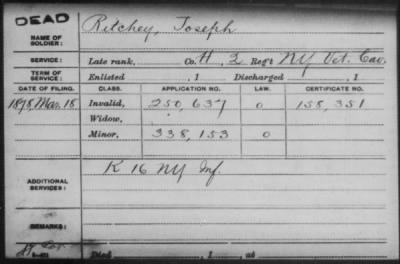 DEAD
NAME OF SOLDIER: Ritchey, Joseph
SERVICE: Late rank, Co. H, 2 Reg't NY Vet. Cav.
TERM OF SERVICE: Enlisted , 1 Discharged , 1
DATE OF FILING. CLASS. APPLICATION NO. LAW. CERTIFICATE NO.
1878, Mar. 18 Invalid, 250,637 0 158,351
Widow,
Minor, 338,153 0
ADDITIONAL SERVICES: K 16 NY Inf.
REMARKS:
Died , 1 , at